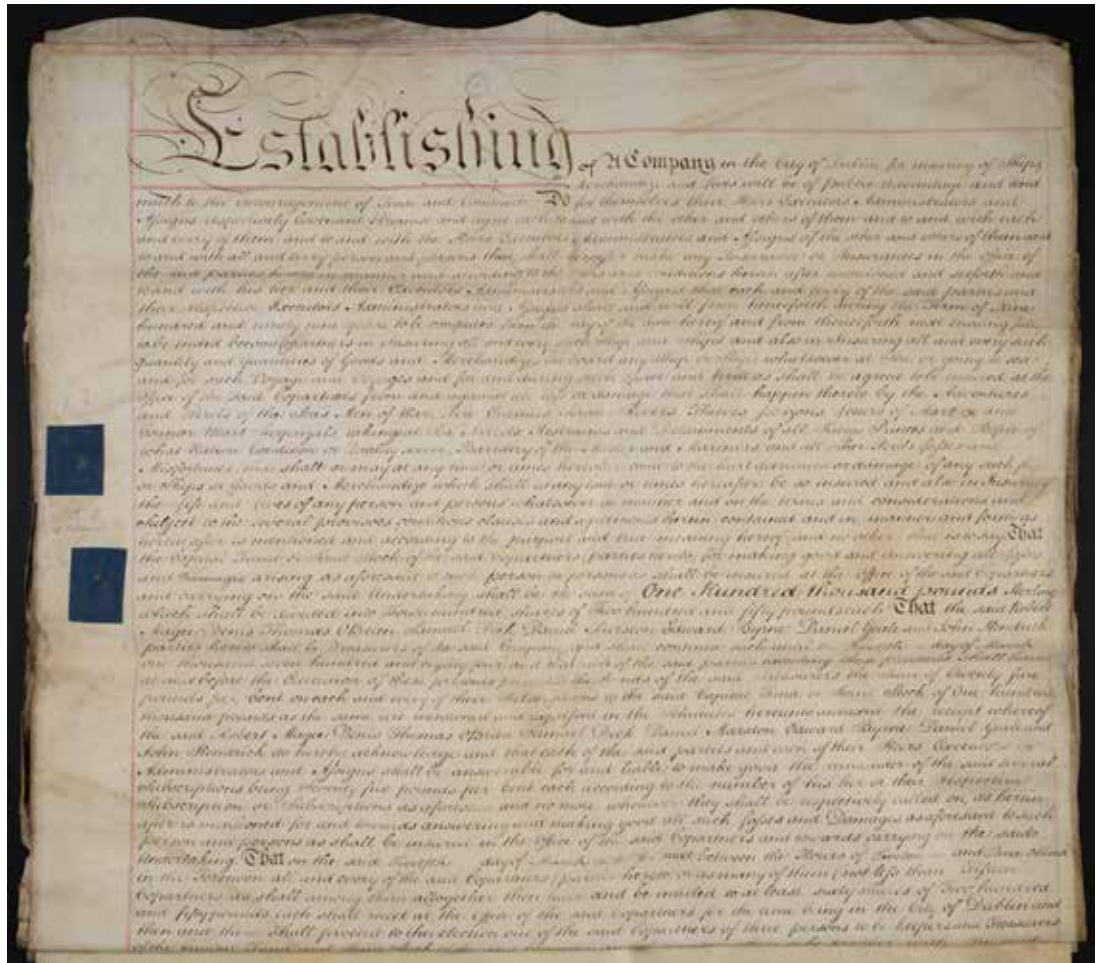 Establishing of A Company in the City of Dublin for insuring of Ships
Merchandize and Lives will be of publick Advantage and tend
much to the encouragement of Trade and Commerce Do for themselves their Heirs Executors Administrators and
Assigns respectively Covenant Promise and agree each to and with the other and others of them and to and with each
and every of them and to and with the Heirs Executors Administrators and Assigns of the other and others of them and
to and with all and every person and persons that shall make any Insurance or Insurances in the Office of
the said parties in manner and according to the and conditions herein after mentioned and
and with his her and their Executors Administrators and Assigns that each and every of the said parties and
their respective Executors Administrators and Assigns shall and will from henceforth during the Term of Nine
hundred and ninety nine years to be computed from the day of the date hereof and from thenceforth next ensuing
become Copartners in Insuring all and every such Ship and Ships and also in Insuring all and every such
quantity and quantities of Goods and Merchandize on board any Ship or Ships whatsoever at Sea or going to sea
and for such Voyage and Voyages and for and during such and as shall be agreed to be insured at the
Office of the said Copartners from and against all loss or damage that shall happen thereto by the Adventures
and Perils of the Seas Men of War Fire Enemies Pirates Rovers Thieves Jettizons Letters of Mart and
Counter Mart Surprizals takings at Sea Arrests Restraints and Detainments of all Kings Princes and People of
what Nation Condition or Quality soever Barratry of the Master and Mariners and all other Perils Losses and
Misfortunes that shall or may at any time or times hereafter come to the hurt detriment or damage of any such
or Ships or Goods and Merchandize which shall at any time or times hereafter be so insured and also in Insuring
the Life and Lives of any person and persons whatsoever in manner and on the terms and considerations and
subject to the several provisoes conditions clauses and agreements herein contained and in manner and form as
herein after is mentioned and according to the purport and true meaning hereof and no other that is to say That
the Capital Fund or Joint Stock of the said Copartners parties hereto for making good and answering all Losses
and Damages arising as aforesaid to such person or persons as shall be insured at the Office of the said Copartners
and carrying on the said Undertaking shall be the sum of One Hundred thousand pounds Sterling
which shall be divided into Four hundred shares of Two hundred and fifty pounds each That the said Robert
Magee Denis Thomas OBrien Samuel Dick Daniel Marston Edward Byrne Daniel Geale and John Kendrick
parties hereto shall be Treasurers of the said Company and shall continue such until the Twelfth day of March
one thousand seven hundred and eighty four and that each of the said parties executing these presents shall
at or before the Execution of these presents the hands of the said Treasurers the sum of twenty five
pounds per Cent on each and every of their Subscriptions to the said Capital Fund or Joint Stock of One hundred
thousand pounds as the same are mentioned and expressed in the Schedule hereunto annexed the receipt whereof
the said Robert Magee Denis Thomas OBrien Samuel Dick Daniel Marston Edward Byrne Daniel Geale and
John Kendrick do hereby acknowledge and that each of the said parties and each of their Heirs Executors
Administrators and Assigns shall be answerable for and liable to make good the remainder of the said several
Subscriptions being Seventy five pounds per Cent each according to the number of his her or their respective
Subscription or Subscriptions as aforesaid and no more whenever they shall be respectively called on as herein
after is mentioned for and towards answering and making good all such Losses and Damages as aforesaid to such
person and persons as shall be insured in the Office of the said Copartners and towards carrying on the said
Undertaking That on the said Twelfth day of March next between the Hours of and Three
in the all and every of the said Copartners parties hereto or as many of them (not less than
Copartners as shall among them altogether then have and be intitled to at least sixty shares of Two hundred
and fifty pounds each shall meet at the Office of the said Copartners for the time being in the City of Dublin and
then and there shall proceed to the election out of the said Copartners of three persons to be keepers and Treasurers